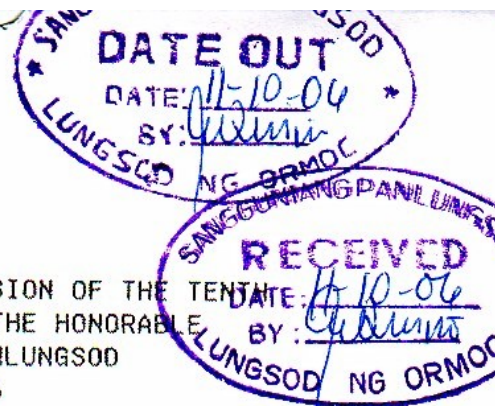 SOD
DATE OUT
DATE: 11-10-06
BY:
LUNGSOD NG ORMOC
SANGGUNIANG PANLUNGS
RECEIVED
DATE: 11-10-06
BY:
LUNGSOD NG ORMOC
SION OF THE TENTH
THE HONORABLE
NLUNGSOD